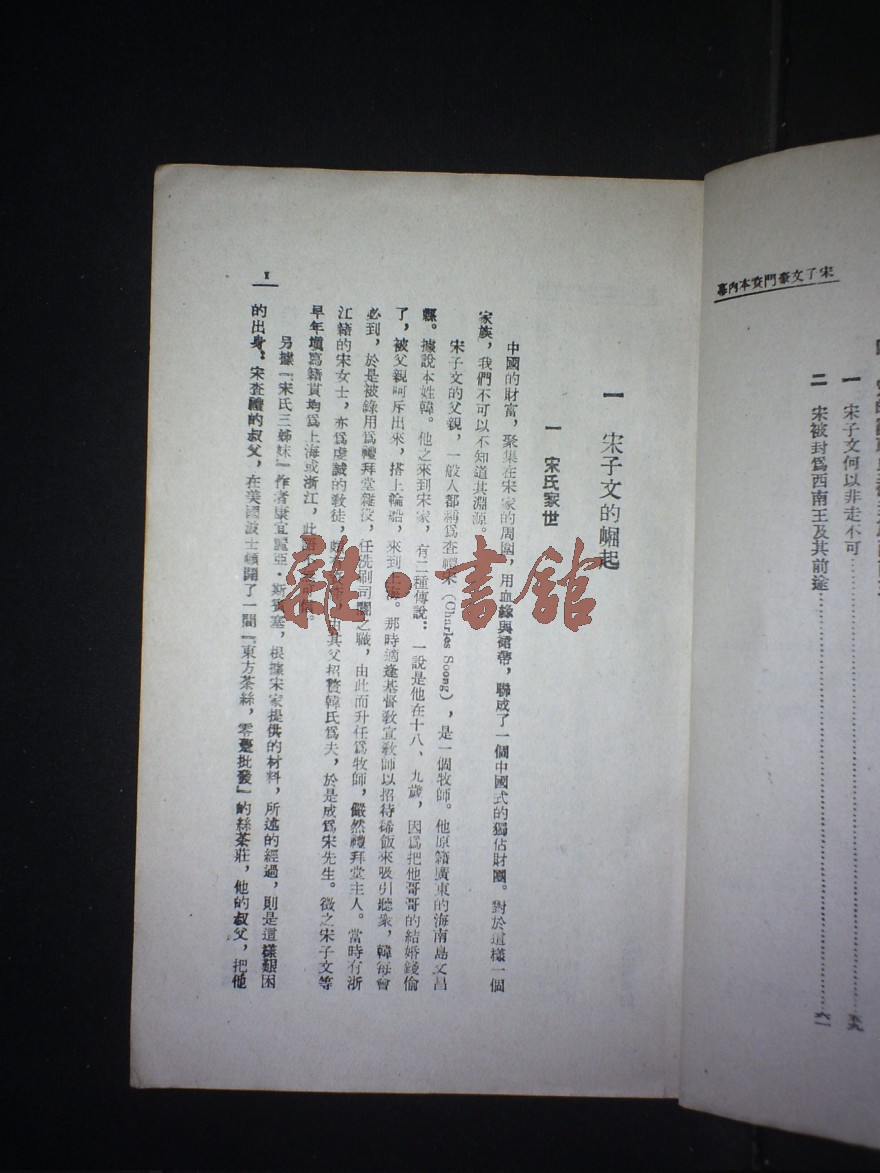 宋子文豪門資本內幕
一 宋子文何以非走不可……………………五九
二 宋被封爲西南王及其前途……………………六一
一 宋子文的崛起
一 宋氏家世
中國的財富，聚集在宋家的周圍，用血緣與裙帶，聯成了一個中國式的獨佔財團。對於這樣一個
家族，我們不可以不知道其淵源。
宋子文的父親，一般人都稱爲查禮宋（Charles Soong），是一個牧師。他原籍廣東的海南島文昌
縣。據說本姓韓。他之來到宋家，有二種傳說：一說是他在十八、九歲，因爲把他哥哥的結婚錢偷
了，被父親呵斥出來，搭上輪船，來到上海。那時適逢基督教宣教師以招待稀飯來吸引聽衆，韓每會
必到，於是被錄用爲禮拜堂雜役，任洗刷司閽之職，由此而升任爲牧師，儼然禮拜堂主人。當時有浙
江籍的宋女士，亦爲虔誠的教徒，由其父招贅韓氏爲夫，於是成爲宋先生。徵之宋子文等
早年塡寫籍貫均爲上海或浙江，此
另據『宋氏三姊妹』作者康宜麗亞·斯賓塞，根據宋家提供的材料，所述的經過，則是這樣艱困
的出身。宋查禮的叔父，在美國波士頓開了一間『東方茶絲，零躉批發』的絲茶莊，他的叔父，把他
1
雜·書館